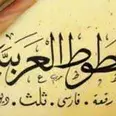 طوط العربية
رقعة . فارسى . ثلث . ديو